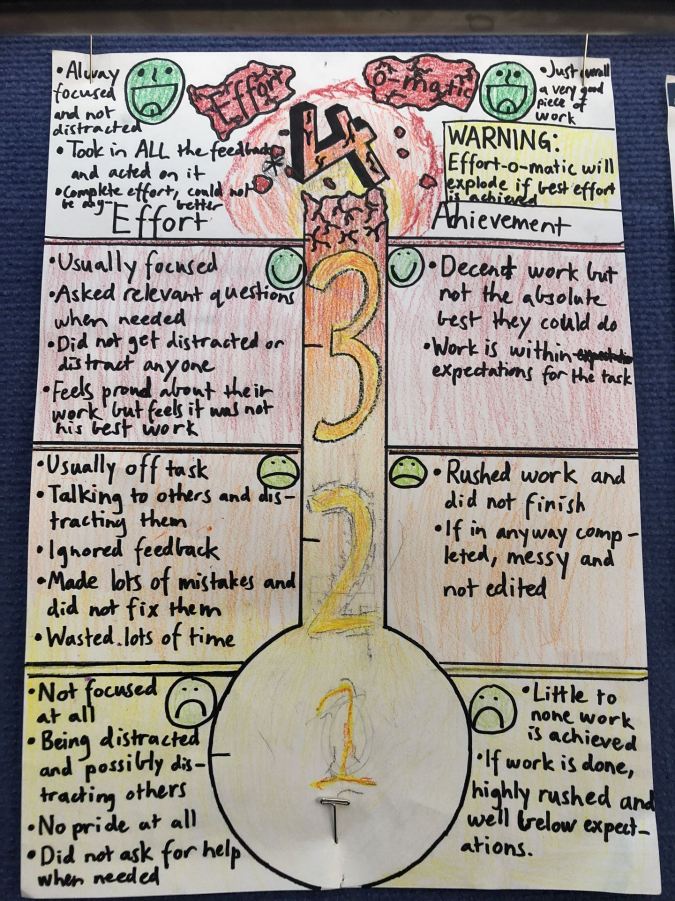 • Alway
focused
and not
distracted
• Took in ALL the feedback
and acted on it
• Complete effort, could not
be any better
Effort
o-matic
• Just overall
a very good
piece of
work
WARNING:
Effort-o-matic will
explode if best effort
is achieved
4
Effort
Achievement
• Usually focused
• Asked relevant questions
when needed
• Did not get distracted or
distract anyone
• Feels proud about their
work but feels it was not
his best work
3
• Decent work but
not the absolute
best they could do
• Work is within
expectations for the task
• Usually off task
• Talking to others and dis-
tracting them
• Ignored feedback
• Made lots of mistakes and
did not fix them
• Wasted lots of time
2
• Rushed work and
did not finish
• If in anyway comp-
leted, messy and
not edited
• Not focused
at all
• Being distracted
and possibly dis-
tracting others
• No pride at all
• Did not ask for help
when needed
1
• Little to
none work
is achieved
• If work is done,
highly rushed and
well below expect-
ations.